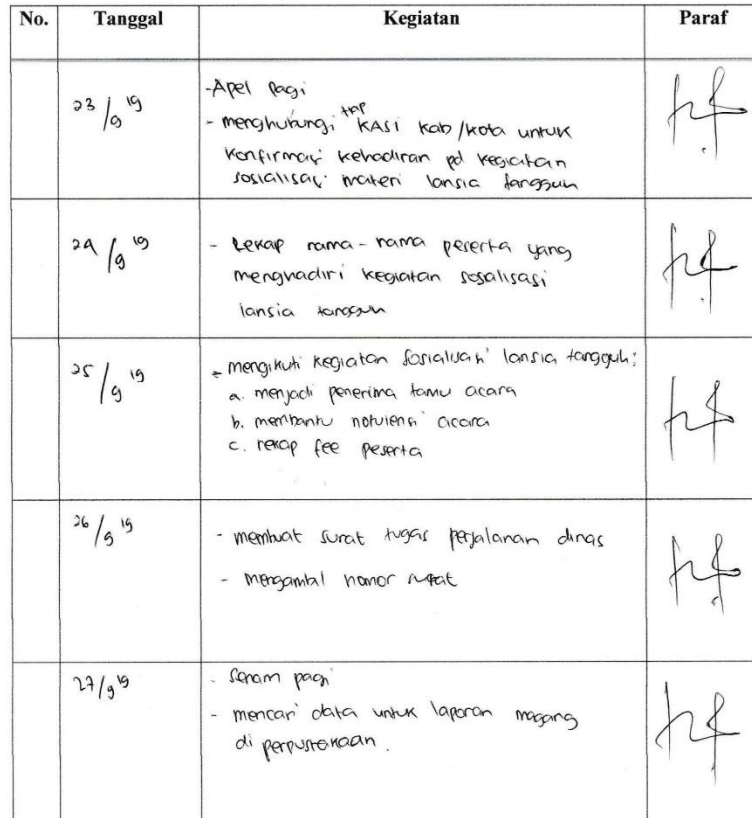 No. Tanggal Kegiatan Paraf
23/9 19
-Apel pagi
- menghubungi tiap KASI Kab/Kota untuk
konfirmasi kehadiran pd kegiatan
sosialisasi materi lansia tangguh
24/9 19
- Rekap nama-nama peserta yang
menghadiri kegiatan sosalisasi
lansia tangguh
25/9 19
- mengikuti kegiatan sosialisasi lansia tangguh:
a. menjadi penerima tamu acara
b. membantu notulensi acara
c. rekap fee peserta
26/9 19
- membuat surat tugas perjalanan dinas
- mengambil nomor surat
27/9 19
- Senam pagi
- mencari data untuk laporan magang
di perpustakaan.